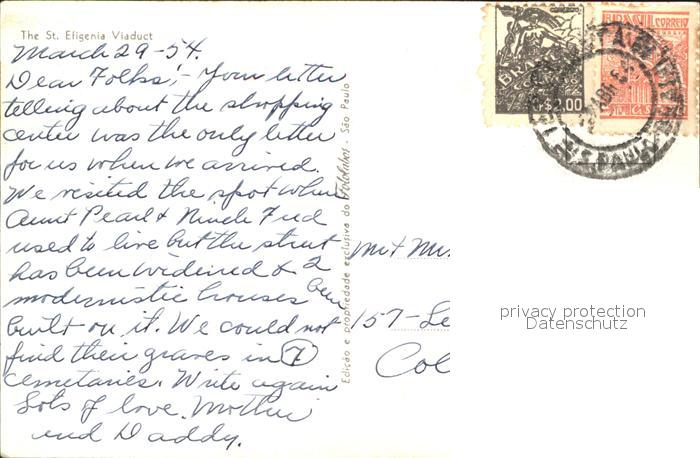 The St. Efigenia Viaduct
March 29-54.
Dear Folks; - Your letter
telling about the shopping
center was the only letter
for us when we arrived.
We visited the spot where
Aunt Pearl & Uncle Fred
used to live but the street
has been widened & 2
modernistic houses been
built on it. We could not
find their graves in 7
cemetaries. Write again
Lots of love. Mother
and Daddy.
Edição e propriedade exclusiva do Fotolabor - São Paulo
Mr & Mrs.
157- Le
Col
BRASIL CORREIO
CORREIO
Cr$2,00
BRASIL CORREIO
S. PAULO
privacy protection
Datenschutz